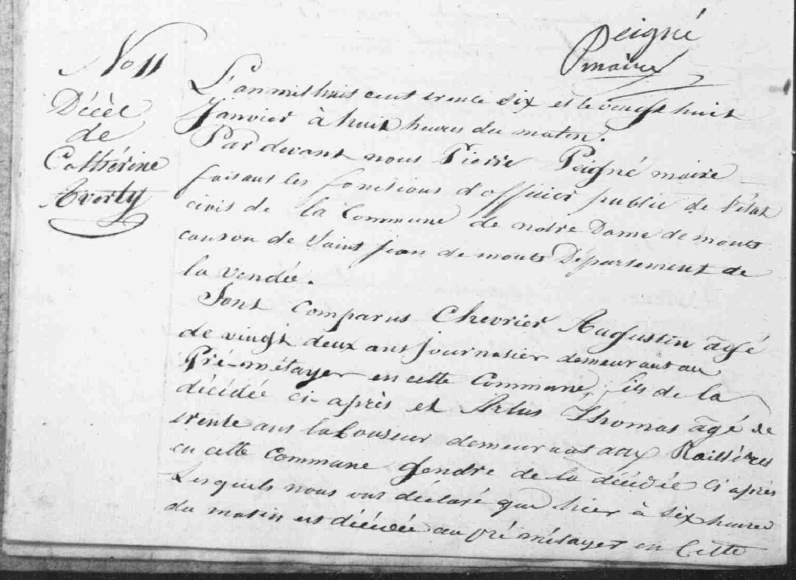 Peigné
maire
No 11
Décèe
de
Cathérine
Averty
L'an mil huit cent trente six et le vingt huit
Janvier à huit heures du matin.
Par devant nous Pierre Peigné maire
faisant les fonctions d'officier public de l'état
civil de la Commune de notre Dame de monts
canton de Saint Jean de monts Département de
la vendée.
Sont Comparus Chevrier Augustin âgé
de vingt deux ans journalier demeurant au
Pré-métayer en cette Commune, fils de la
décédée ci-après et Artus Thomas âgé de
trente ans laboureur demeurant aux
en cette Commune Gendre de la décédée ci après
Lesquels nous ont déclaré que hier à six heures
du matin est décédée au pré métayer en Cette